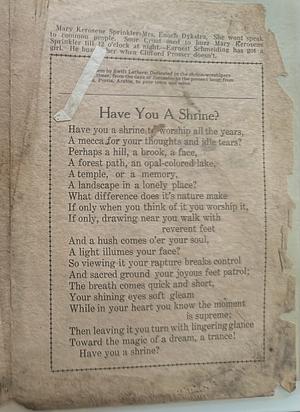 Mary Kerosene Sprinkler-Mrs. Enoch Dykstra, She wont speak
to common people. Some Crust used to buzz Mary Kerosene
Sprinkler till 12 o'clock at night.-Earnest Schmeiding has got a
girl. He buzz her when Clifford Prosser doesn't.
by Swift Lathers: Dedicated to the shrine-worshipers
time, from the days of to the present hour; from
Petra, Arabia, to your town and mine.
Have You A Shrine?
Have you a shrine to worship all the years,
A mecca for your thoughts and idle tears?
Perhaps a hill, a brook, a face,
A forest path, an opal-colored lake,
A temple, or a memory,
A landscape in a lonely place?
What difference does it's nature make
If only when you think of it you worship it,
If only, drawing near you walk with
reverent feet
And a hush comes o'er your soul,
A light illumes your face?
So viewing it your rapture breaks control
And sacred ground your joyous feet patrol;
The breath comes quick and short,
Your shining eyes soft gleam
While in your heart you know the moment
is supreme;
Then leaving it you turn with lingering glance
Toward the magic of a dream, a trance!
Have you a shrine?